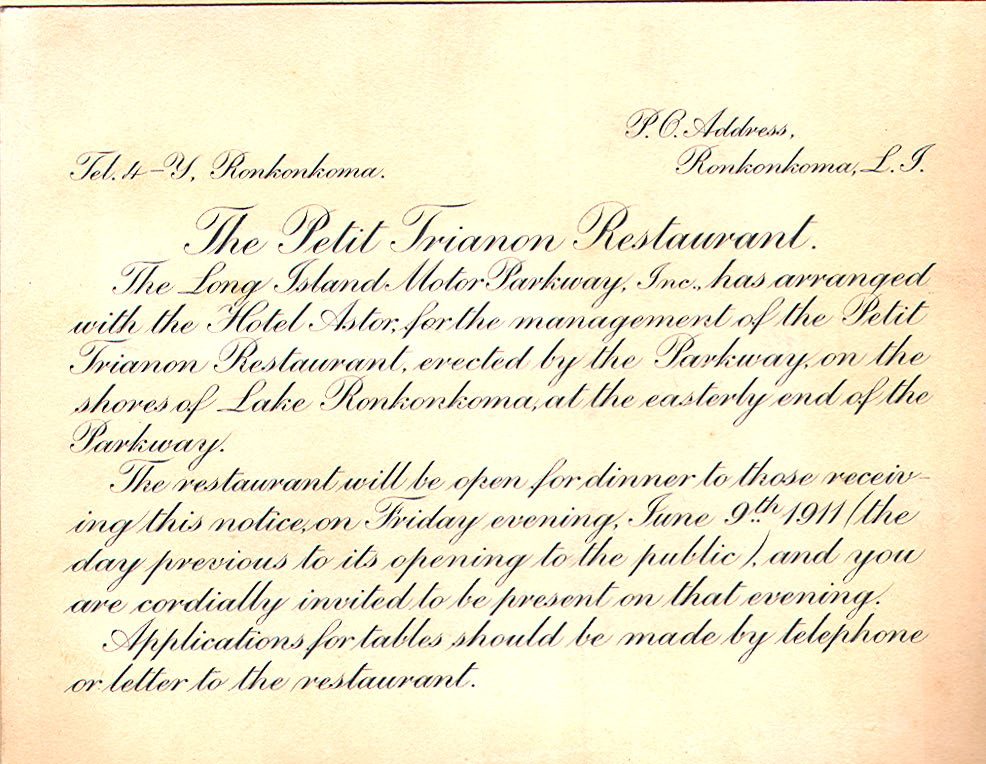 P.O. Address,
Tel. 4-Y, Ronkonkoma.
Ronkonkoma, L. I.
The Petit Trianon Restaurant.
The Long Island Motor Parkway, Inc., has arranged
with the Hotel Astor, for the management of the Petit
Trianon Restaurant, erected by the Parkway, on the
shores of Lake Ronkonkoma, at the easterly end of the
Parkway.
The restaurant will be open for dinner to those receiv-
ing this notice, on Friday evening, June 9th 1911 (the
day previous to its opening to the public), and you
are cordially invited to be present on that evening.
Applications for tables should be made by telephone
or letter to the restaurant.